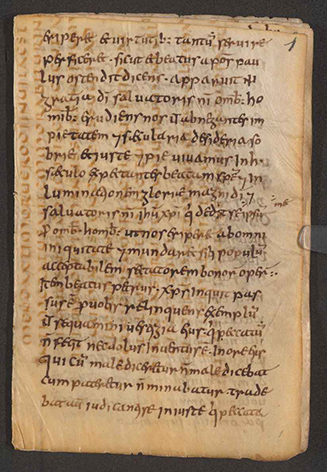 eriper& & uirtutib; tantū seruire
perficere. sicut & beatus apos pau
lus ostendit dicens. apparuit
gratia dī saluatoris nī omib; ho
mib; erudiens nos ut abnegantes im
pietatem 7 secularia desideria so
brie & iuste 7 pie uiuamus In h
seculo expectantes beatam spem 7 In
luminationem glorie magni dī 7
saluatoris nī ihū xpī q dedit se ipsū
p omib; homib; ut nos eriper& ab omni
iniquitate 7 mundar& sibi populū
acceptabilem sectatorem bonor oper
Item beatus petrus. xps inquit pas
sus ē p uobis relinquens exemplū
ut sequamini uestigia eius. q peccatū
n̄ fecit nec dolus inuentus ē In ore eius
qui cū malediceretur n̄ maledicebat
cum pateretur n̄ minabatur trade
bat aut iudicanti se iniuste q peccata